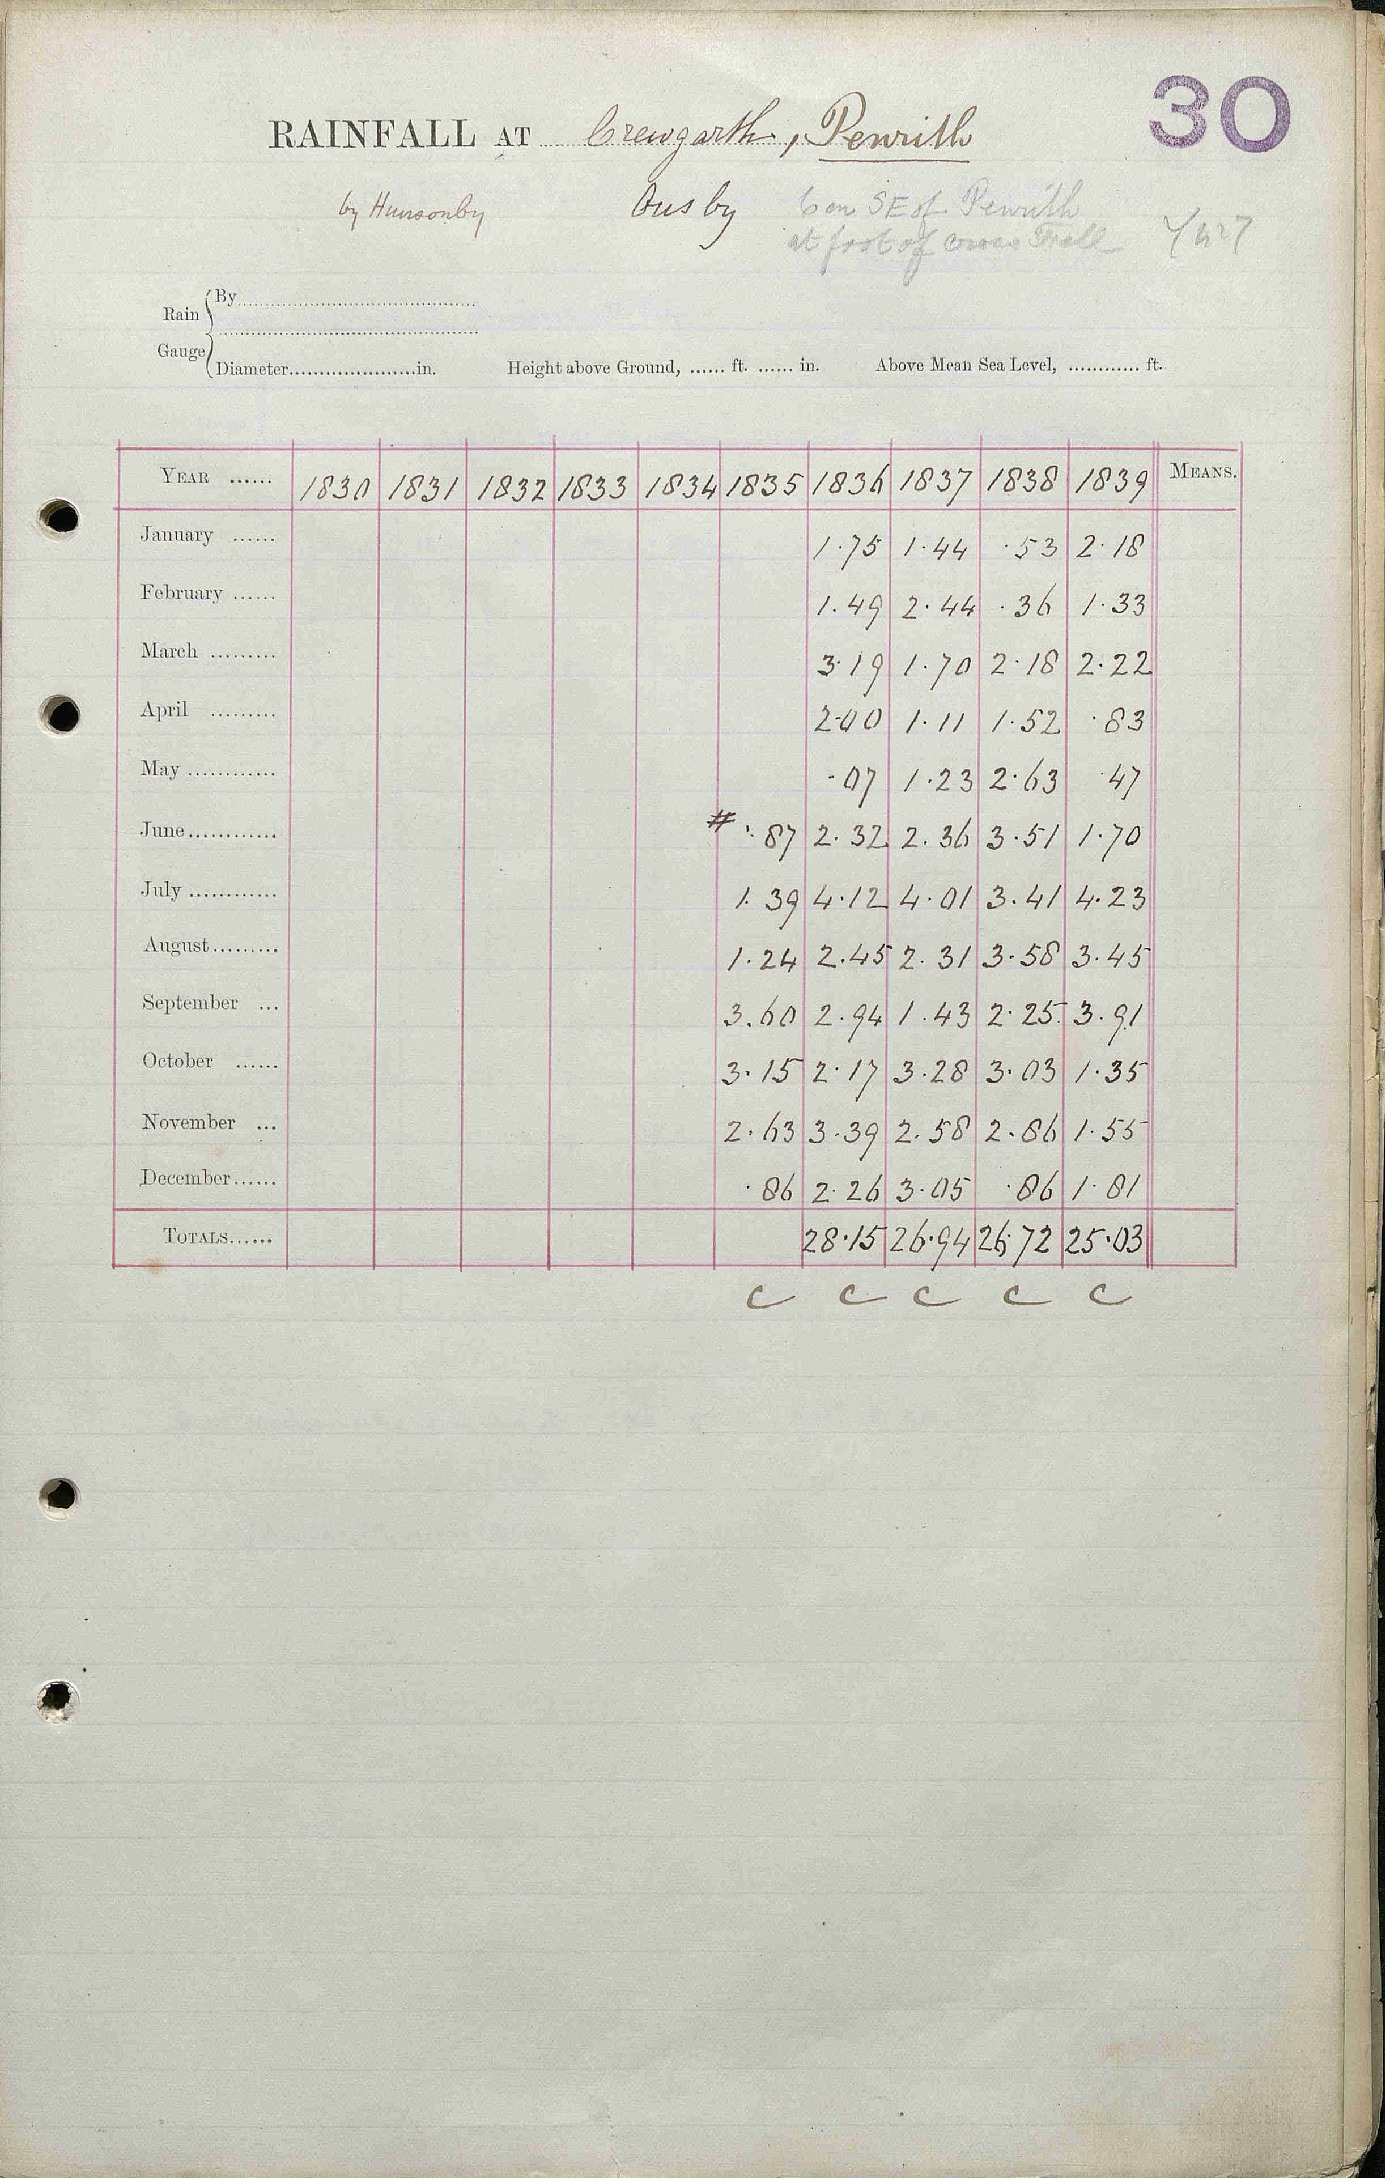 30
RAINFALL AT Crewgarth, Penrith
by Hunsonby Ousby 6 m SE of Penrith
at foot of Cross Fell
Rain Gauge { By
Diameter......in. Height above Ground, ...... ft. ...... in. Above Mean Sea Level, ............ ft.
YEAR ...... 1830 1831 1832 1833 1834 1835 1836 1837 1838 1839 MEANS.
January ...... 1.75 1.44 .53 2.18
February ...... 1.49 2.44 .36 1.33
March ......... 3.19 1.70 2.18 2.22
April ......... 2.00 1.11 1.52 .83
May ............ .07 1.23 2.63 .47
June............ # .87 2.32 2.36 3.51 1.70
July ............ 1.39 4.12 4.01 3.41 4.23
August......... 1.24 2.45 2.31 3.58 3.45
September ... 3.60 2.94 1.43 2.25 3.91
October ...... 3.15 2.17 3.28 3.03 1.35
November ... 2.63 3.39 2.58 2.86 1.55
December...... .86 2.26 3.05 .86 1.81
TOTALS...... 28.15 26.94 26.72 25.03
C C C C C